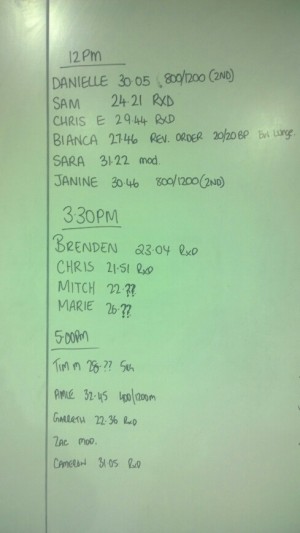 12PM
DANIELLE 30.05 800/1200 (2ND)
SAM 24.21 RXD
CHRIS E 29.44 RXD
BIANCA 27.46 REV. ORDER 20/20 BP Lunge
SARA 31.22 mod.
JANINE 30.46 800/1200 (2ND)
3:30PM
BRENDEN 23.04 RXD
CHRIS 21.51 RXD
MITCH 22.??
MARIE 26.??
5:00PM
Tim m 28.??
32.45 400/200m
GARRETH 22.36 RXD
ZAC mod.
CAMERON 31.05 RXD